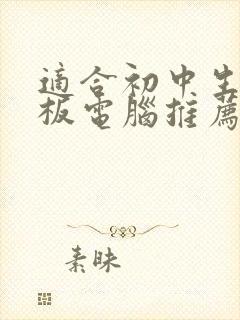 適合初中生
板電腦推薦
素昧